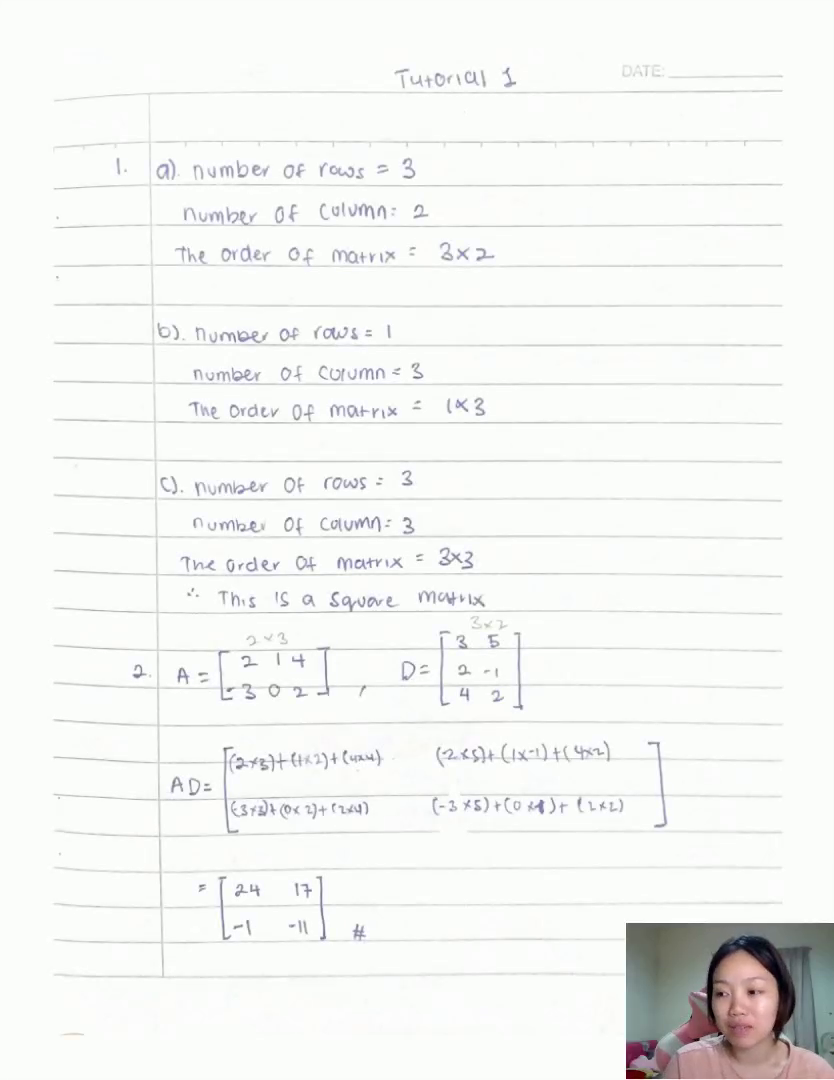 Tutorial 1
DATE:
1. a). number of rows = 3
number of column: 2
The order of matrix = 3×2
b). number of rows = 1
number of column = 3
The order of matrix = 1×3
c). number of rows = 3
number of column: 3
The order of matrix = 3×3
∴ This is a square matrix
2×3 3×2
2. A = [2 1 4 , D = [3 5]
-3 0 2] 2 -1
4 2
AD = [(2×3)+(1×2)+(4×4) (2×5)+(1×-1)+(4×2)]
(-3×3)+(0×2)+(2×4) (-3×5)+(0×-1)+(2×2)
= [24 17]
-1 -11 #